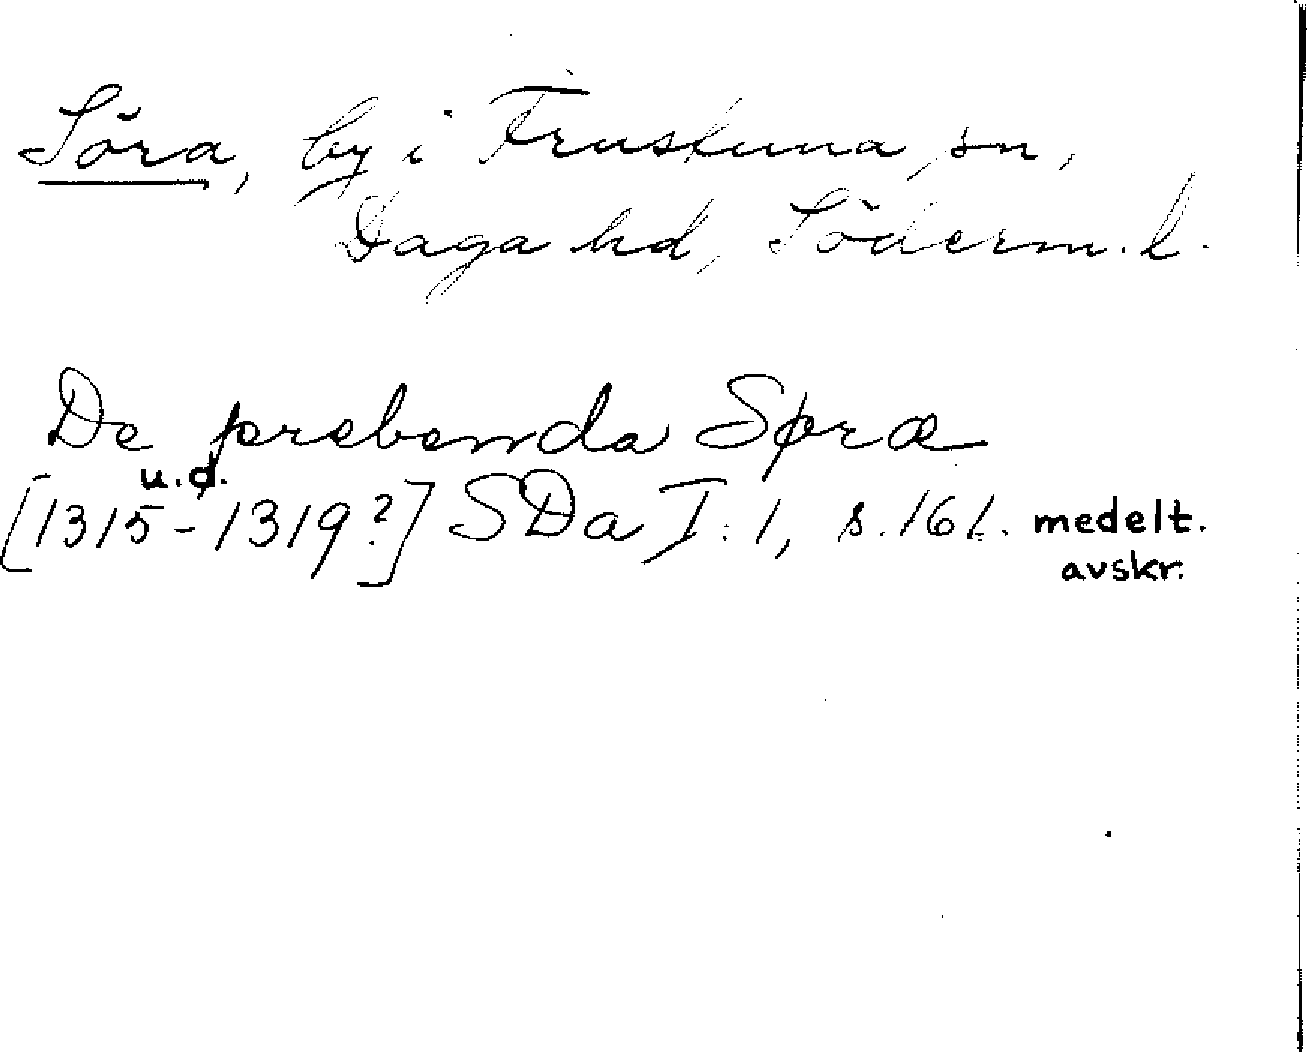 Söra, by i Frustuna sn,
Daga hd, Söderm. l.
De prebenda Søræ
u.d.
[1315-1319?] SDa I:1, s. 161. medelt.
avskr.